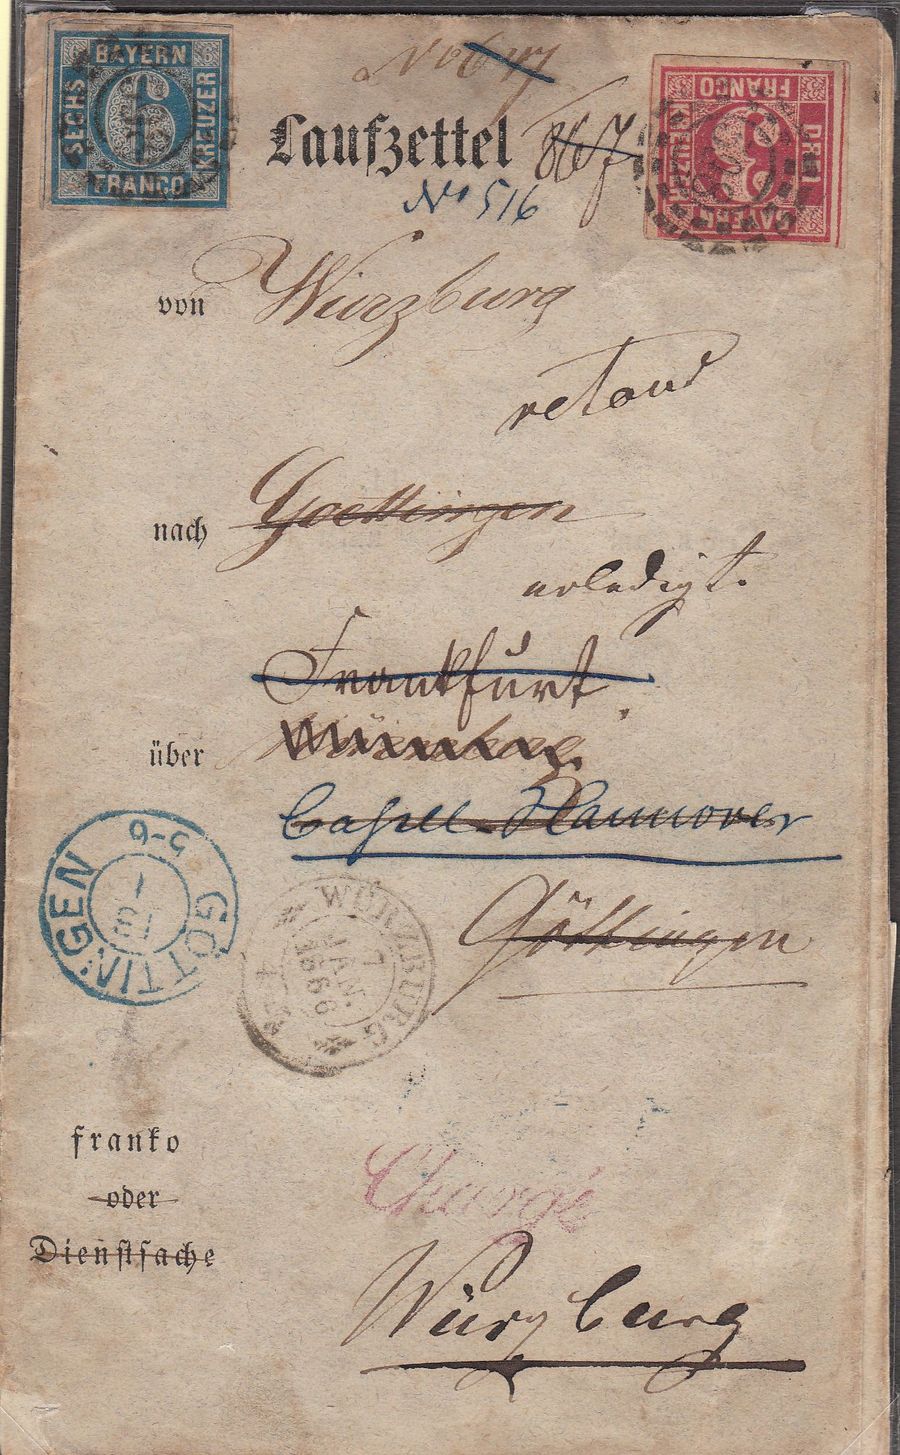 BAYERN
SECHS 6 KREUZER
FRANCO
FRANCO
DREI 3 KREUZER
BAYERN
Laufzettel
867
No 516
von Würzburg
retour
nach Goettingen
erledigt.
Frankfurt
über
Cassel-Hannover
Göttingen
GÖTTINGEN
5-6
WÜRZBURG
7
JAN.
1866
franko
oder
Dienstsache
Chargé
Würzburg